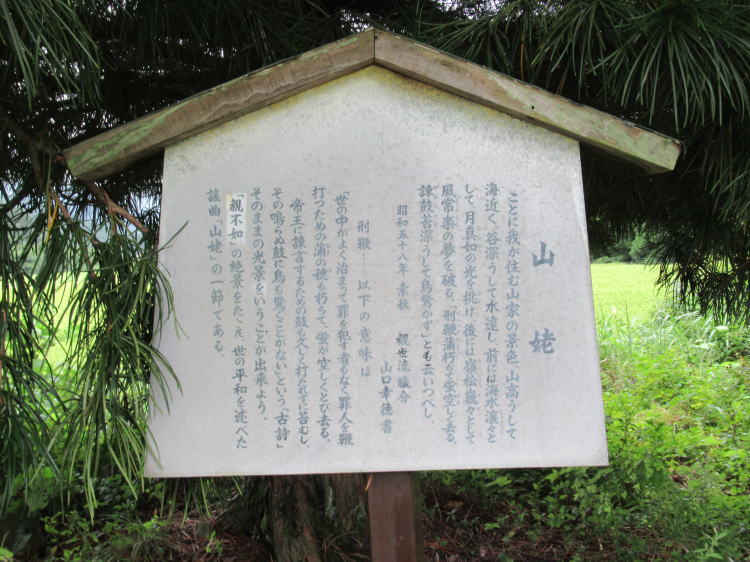 山姥
ことに我が住む山家の景色、山高うして
海近く、谷深うして水遠し、前には海水瀼々と
して、月真如の光を挑げ、後には嶺松巍々として
風常楽の夢を破る、刑鞭蒲朽ちて螢空しく去る、
諫鼓苔深うして鳥驚かずとも云いつべし、
昭和五十八年 素秋 観世流職分
山口幸徳書
刑鞭……以下の意味は
「世の中がよく治まって罪を犯す者もなく罪人を鞭
打つための蒲の穂も朽ちて、螢が空しくとび去る。
帝王に諫言するための鼓も久しく打たれずに苔むし、
その鳴らぬ鼓に鳥も驚くことがない」という「古詩」
そのままの光景をいうことが出来よう。
「親不知」の絶景をたゝえ、世の平和を述べた
謡曲「山姥」の一節である。